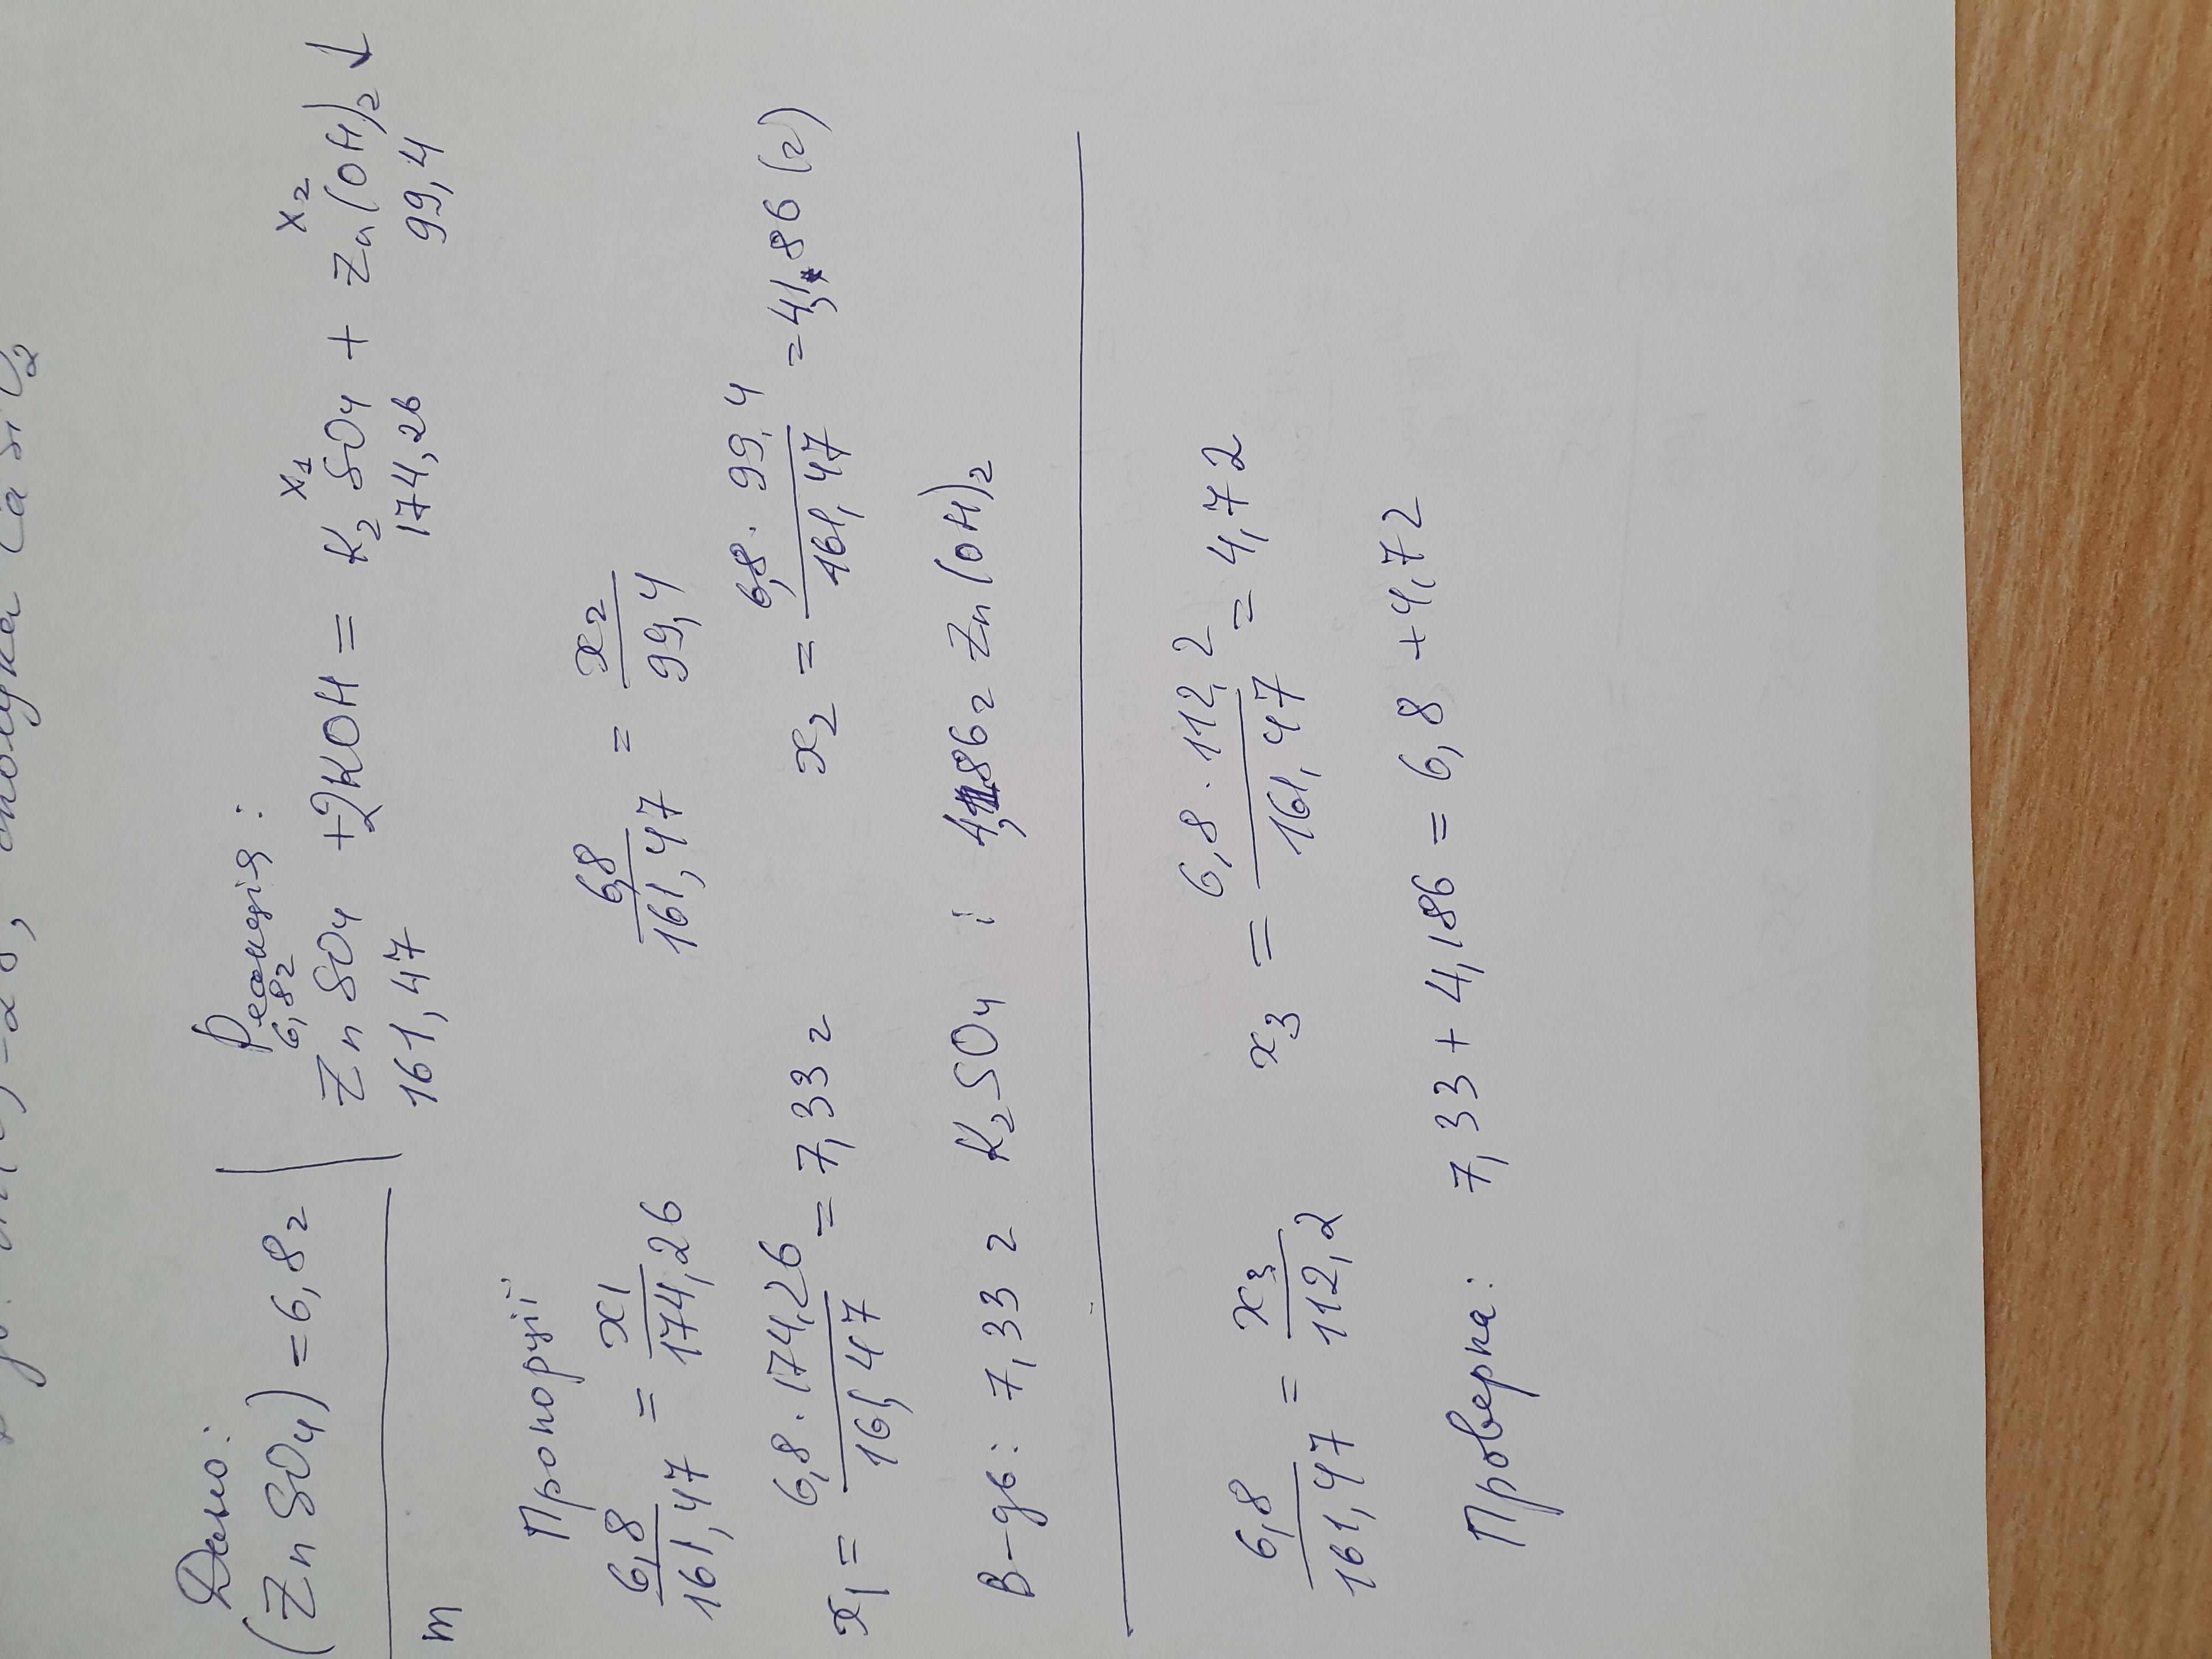 Дано:
(ZnSO4) = 6,8г
m
Реакція:
6,8г x1 x2
ZnSO4 + 2KOH = K2SO4 + Zn(OH)2↓
161,47 174,26 99,4
Пропорції
6,8/161,47 = x1/174,26 6,8/161,47 = x2/99,4
x1 = 6,8·174,26/161,47 = 7,33 г x2 = 6,8·99,4/161,47 = 4,186 (г)
В-дь: 7,33 г K2SO4 і 4,186г Zn(OH)2
6,8/161,47 = x3/112,2 x3 = 6,8·112,2/161,47 = 4,72
Проверка: 7,33 + 4,186 = 6,8 + 4,72